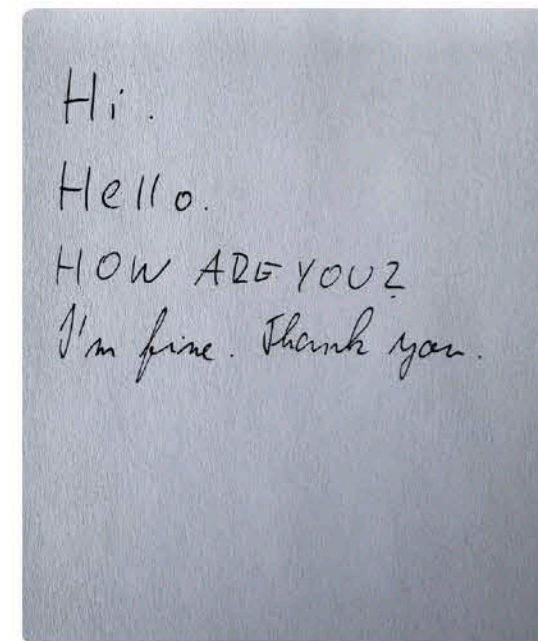 Hi.
Hello.
HOW ARE YOU?
I'm fine. Thank you.